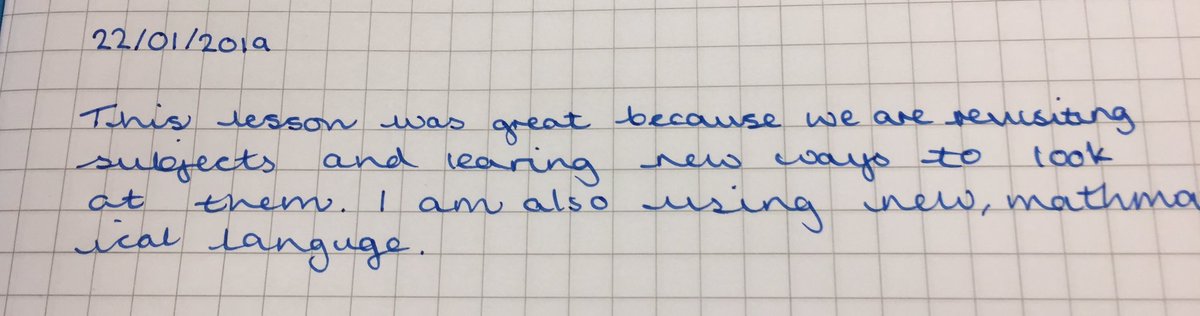 22/01/2019
This lesson was great because we are revisiting
subjects and learing new ways to look
at them. I am also using new, mathma
ical languge.